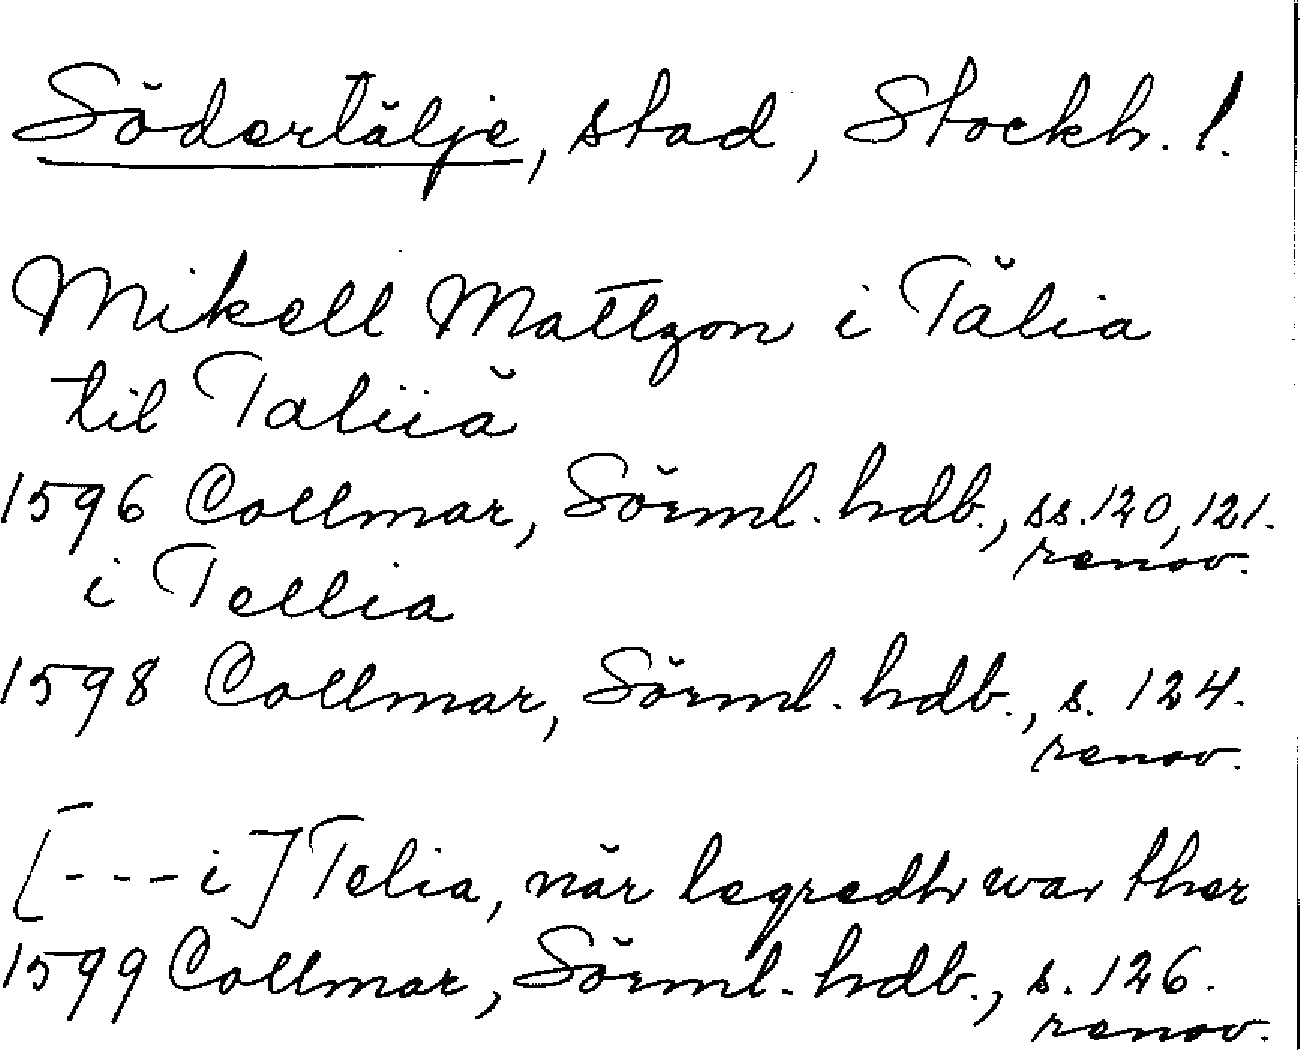 Södertälje, stad, Stockh. l.
Mikell Mattzon i Tälia
til Taliiä
1596 Collmar, Sörml. hdb., ss. 120, 121.
renov.
i Tellia
1598 Collmar, Sörml. hdb., s. 124.
renov.
[--- i] Telia, när legredh war ther
1599 Collmar, Sörml. hdb., s. 126.
renov.